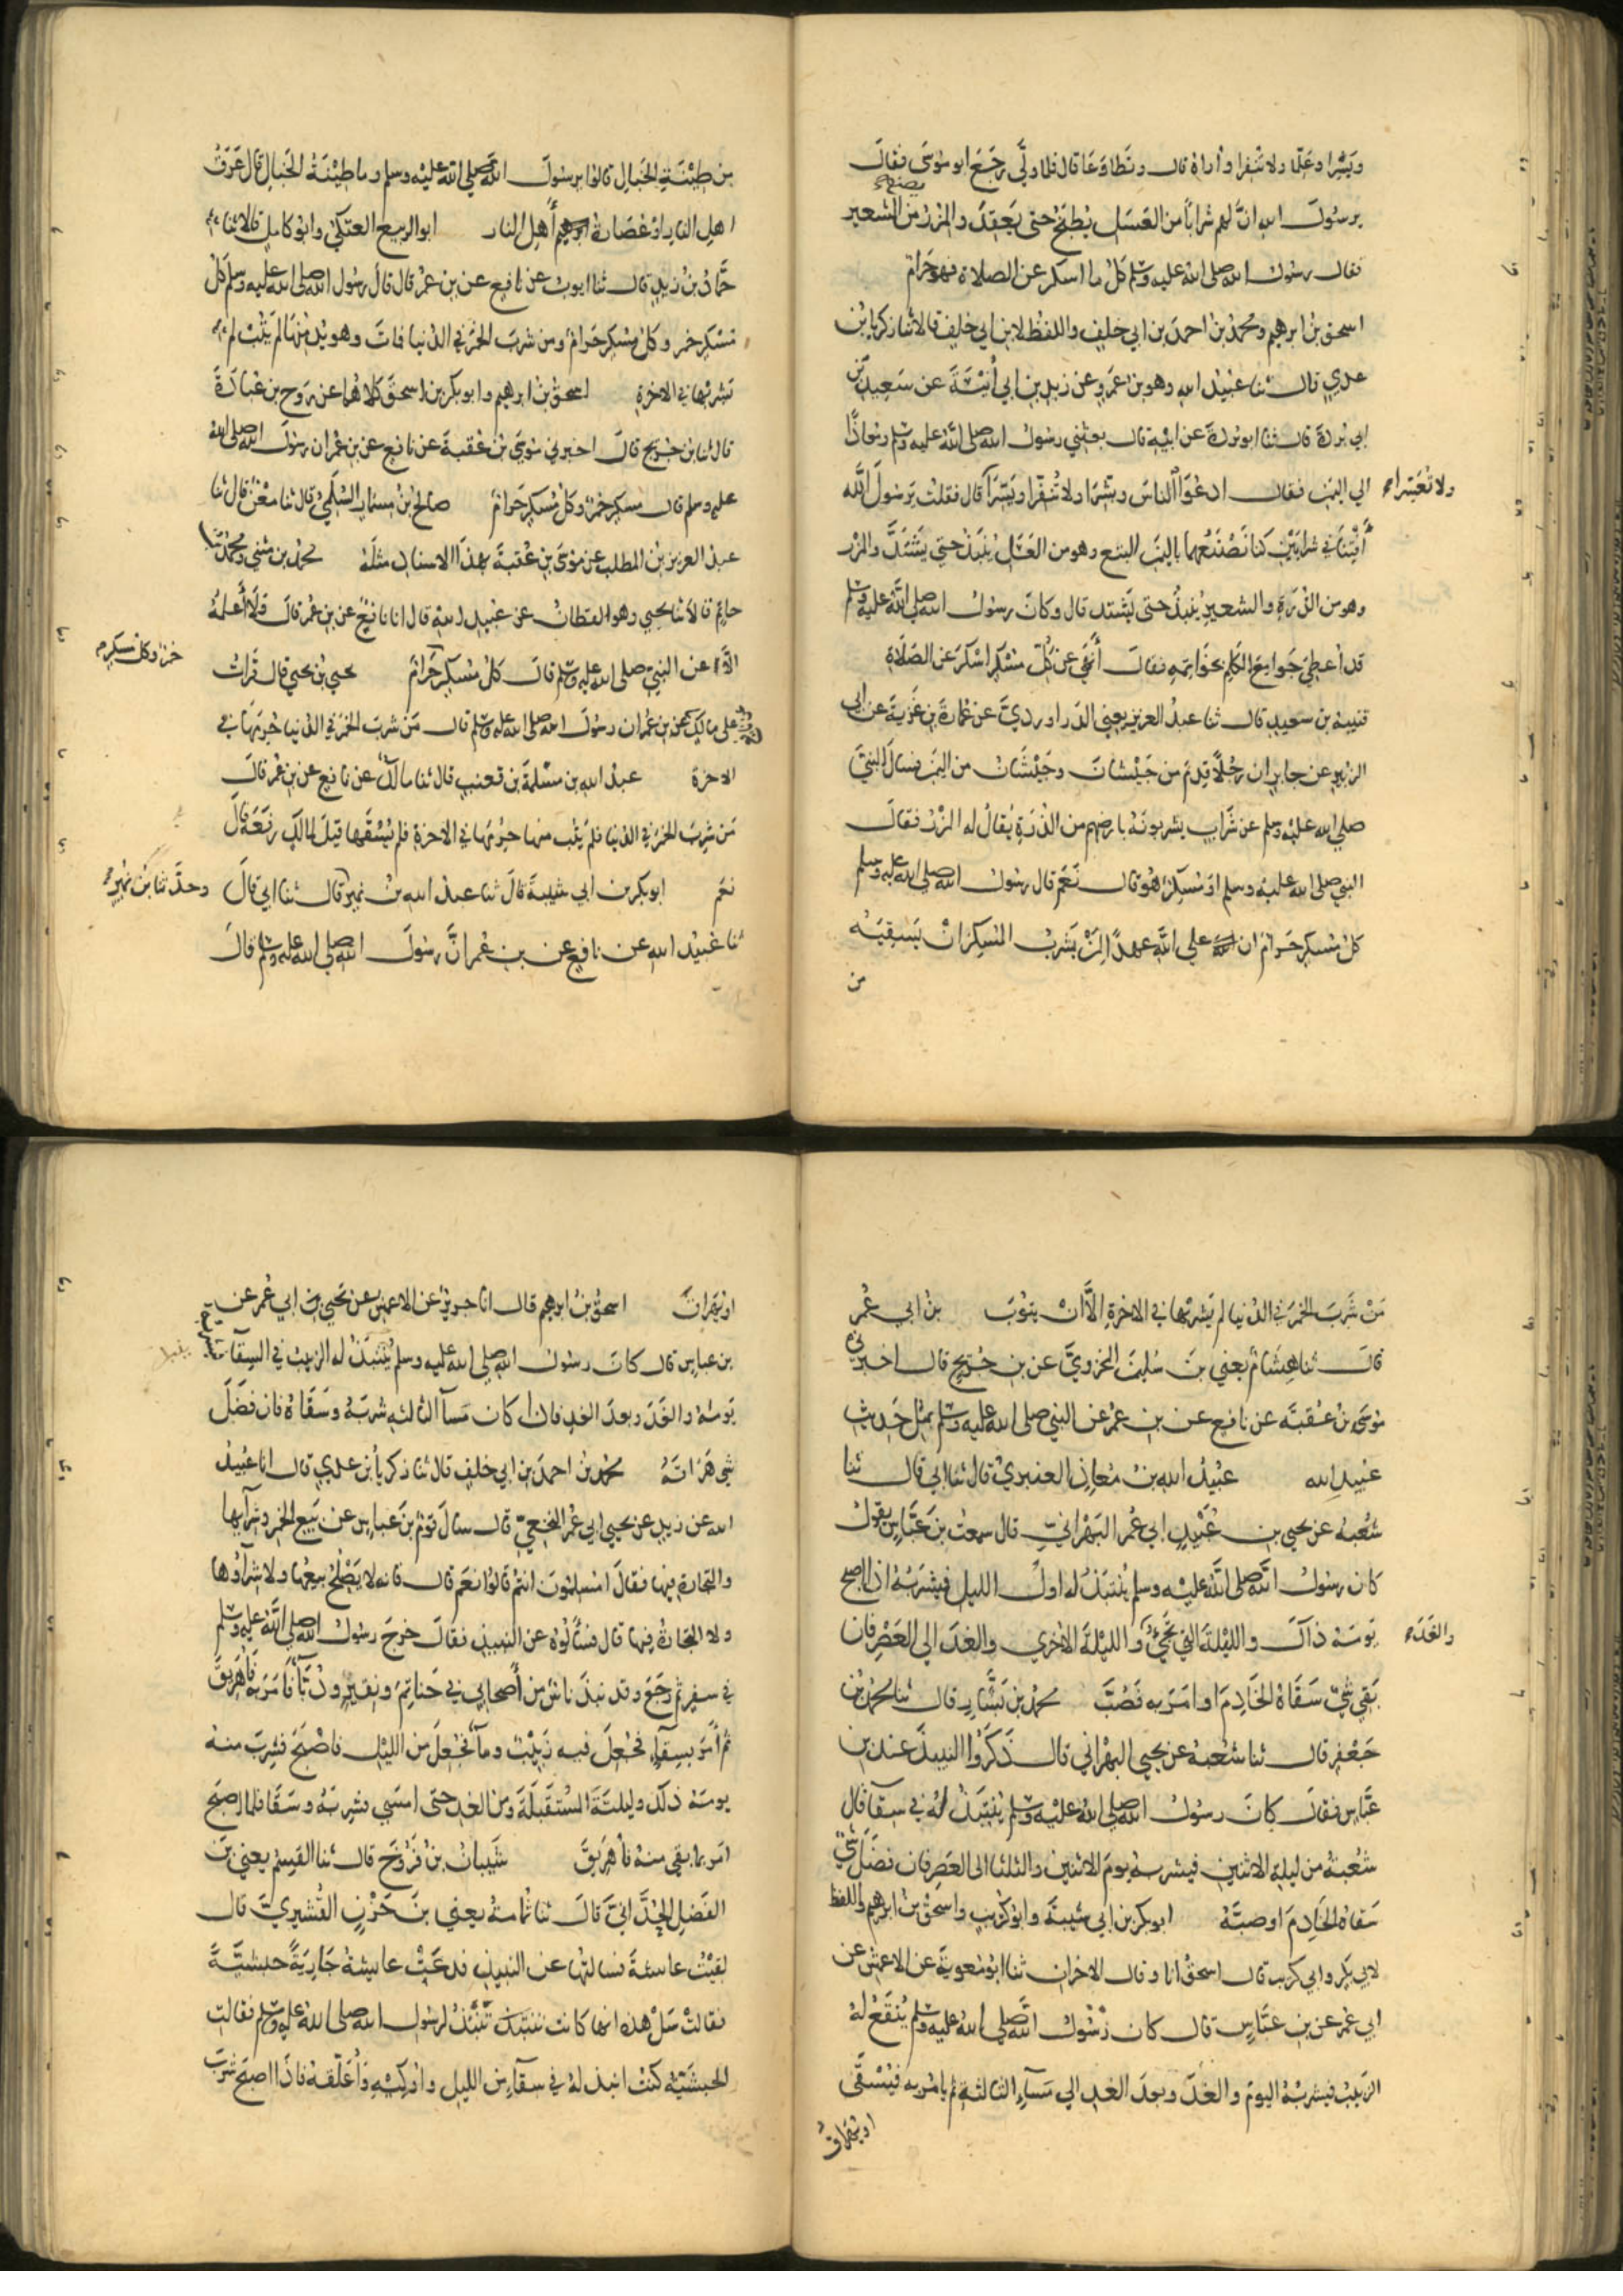 ويسرا وعلما ولا تنفرا واراه قال وتطاوعا قال فلما ولي رجع ابو موسى فقال
يرسول الله ان لهم شرابا من العسل يطبخ حتى يعقد والمزر يصنع من الشعير
فقال رسول الله صلى الله عليه وسلم كل ما اسكر عن الصلاة فهو حرام
اسحق بن ابرهيم ومحمد بن احمد بن ابي خلف واللفظ لابن ابي خلف قالا ثنا زكريا بن
عدي قال ثنا عبيد الله وهو بن عمرو عن زيد بن ابي أنيسة عن سعيد بن
ابي بردة قال ثنا ابو بردة عن ابيه قال بعثني رسول الله صلى الله عليه وسلم ومعاذا
الي اليمن فقال ادعوا الناس وبشرا ولا تنفرا ويسرا ولا تعسرا قال فقلت يرسول الله
أفتنا في شرابين كنا نصنعهما باليمن البتع وهو من العسل ينبذ حتى يشتد والمزر
وهو من الذرة والشعير ينبذ حتى يشتد قال وكان رسول الله صلى الله عليه وسلم
قد أعطي جوامع الكلم بخواتمه فقال أنهى عن كل مسكر اسكر عن الصلاة
قتيبة بن سعيد قال ثنا عبد العزيز يعني الدراوردي عن عمارة بن غزية عن ابي
الزبير عن جابر ان رجلا قدم من جيشان وجيشان من اليمن فسأل النبي
صلى الله عليه وسلم عن شراب يشربونه بارضهم من الذرة يقال له المزر فقال
النبي صلى الله عليه وسلم او مسكر هو قال نعم قال رسول الله صلى الله عليه وسلم
كل مسكر حرام ان على الله عهدا لمن يشرب المسكر ان يسقيه
من
من طينة الخبال قالوا يرسول الله صلى الله عليه وسلم وما طينة الخبال قال عرق
اهل النار او عصارة أهل النار ابو الربيع العتكي وابو كامل قالا ثنا
حماد بن زيد قال ثنا ايوب عن نافع عن بن عمر قال قال رسول الله صلى الله عليه وسلم كل
مسكر خمر وكل مسكر حرام ومن شرب الخمر في الدنيا فمات وهو يدمنها لم يتب لم
يشربها في الاخرة اسحق بن ابرهيم وابو بكر بن اسحق كلاهما عن روح بن عبادة
قال ثنا بن جريج قال اخبرني موسى بن عقبة عن نافع عن بن عمر ان رسول الله صلى الله
عليه وسلم قال مسكر خمر وكل مسكر حرام صالح بن مسمار السلمي قال ثنا معن قال ثنا
عبد العزيز بن المطلب عن موسى بن عقبة بهذا الاسناد مثله محمد بن مثنى ومحمد بن
حاتم قالا ثنا يحيى وهو القطان عن عبيد الله قال انا نافع عن بن عمر قال ولا أعلمه
الا عن النبي صلى الله عليه وسلم قال كل مسكر خمر وكل مسكر حرام يحيى بن يحيى قال قرات
على مالك عن بن عمر ان رسول الله صلى الله عليه وسلم قال من شرب الخمر في الدنيا حرمها في
الاخرة عبد الله بن مسلمة بن قعنب قال ثنا مالك عن نافع عن بن عمر قال
من شرب الخمر في الدنيا فلم يتب منها حرمها في الاخرة فلم يسقها قيل لمالك رفعه قال
نعم ابو بكر بن ابي شيبة قال ثنا عبد الله بن نمير وحدثنا بن نمير قال ثنا ابي قال
ثنا عبيد الله عن نافع عن بن عمر ان رسول الله صلى الله عليه وسلم قال
من شرب الخمر في الدنيا لم يشربها في الاخرة الا ان يتوب بن ابي عمر
قال ثنا هشام يعني بن سليمن المخزومي عن بن جريج قال اخبرني
موسى بن عقبة عن نافع عن بن عمر عن النبي صلى الله عليه وسلم بمثل حديث
عبيد الله عبيد الله بن معاذ العنبري قال ثنا ابي قال ثنا
شعبة عن يحيى بن عبيد ابي عمر البهراني قال سمعت بن عباس يقول
كان رسول الله صلى الله عليه وسلم ينتبذ له اول الليل فيشربه اذا اصبح
يومه ذلك والليلة التي تجيء والغد والليلة الاخرى والغد الى العصر فان
بقي شيء سقاه الخادم او امر به فصب محمد بن بشار قال ثنا محمد بن
جعفر قال ثنا شعبة عن يحيى البهراني قال ذكروا النبيذ عند بن
عباس فقال كان رسول الله صلى الله عليه وسلم ينتبذ له في سقا قال
شعبة من ليلة الاثنين فيشربه يوم الاثنين والثلثا الى العصر فان فضل شي
سقاه الخادم او صبه ابو بكر بن ابي شيبة وابو كريب واسحق بن ابرهيم واللفظ
لابي بكر وابي كريب قال اسحق انا وقال الاخران ثنا ابو معوية عن الاعمش عن
ابي عمر عن بن عباس قال كان رسول الله صلى الله عليه وسلم ينقع له
الزبيب فيشربه اليوم والغد وبعد الغد الى مساء الثالثة ثم يامر به فيسقى
او يهراق
او يهراق اسحق بن ابرهيم قال انا جرير عن الاعمش عن يحيى بن ابي عمر عن
بن عباس قال كان رسول الله صلى الله عليه وسلم ينبذ له الزبيب في السقا فيشربه
يومه والغد وبعد الغد فاذا كان مسا الثالثة شربه وسقاه فان فضل
شي هراقه محمد بن احمد بن ابي خلف قال ثنا زكريا بن عدي قال انا عبيد
الله عن زيد عن يحيى ابي عمر النخعي قال سال قوم بن عباس عن بيع الخمر وشرآيها
والتجارة فيها فقال امسلمون انتم قالوا نعم قال فانه لا يصلح بيعها ولا شرآؤها
ولا التجارة فيها قال فسألوه عن النبيذ فقال خرج رسول الله صلى الله عليه وسلم
في سفر ثم رجع وقد نبذ ناس من أصحابه في حناتم ونقير ودبآء فامر به فاهريق
ثم أمر بسقاء فجعل فيه زبيب ومآء فجعل من الليل فاصبح فشرب منه
يومه ذلك وليلته المستقبلة ومن الغد حتى امسى فشربه وسقا فلما اصبح
امر بما بقي منه فاهريق شيبان بن فروخ قال ثنا القسم يعني بن
الفضل الحداني قال ثنا ثمامة يعني بن حزن القشيري قال
لقيت عايشة فسالتها عن النبيذ فدعت عايشة جارية حبشية
فقالت سل هذه انها كانت تنبذ لرسول الله صلى الله عليه وسلم فقالت
الحبشية كنت انبذ له في سقآء من الليل واوكيه وأعلقه فاذا اصبح شرب